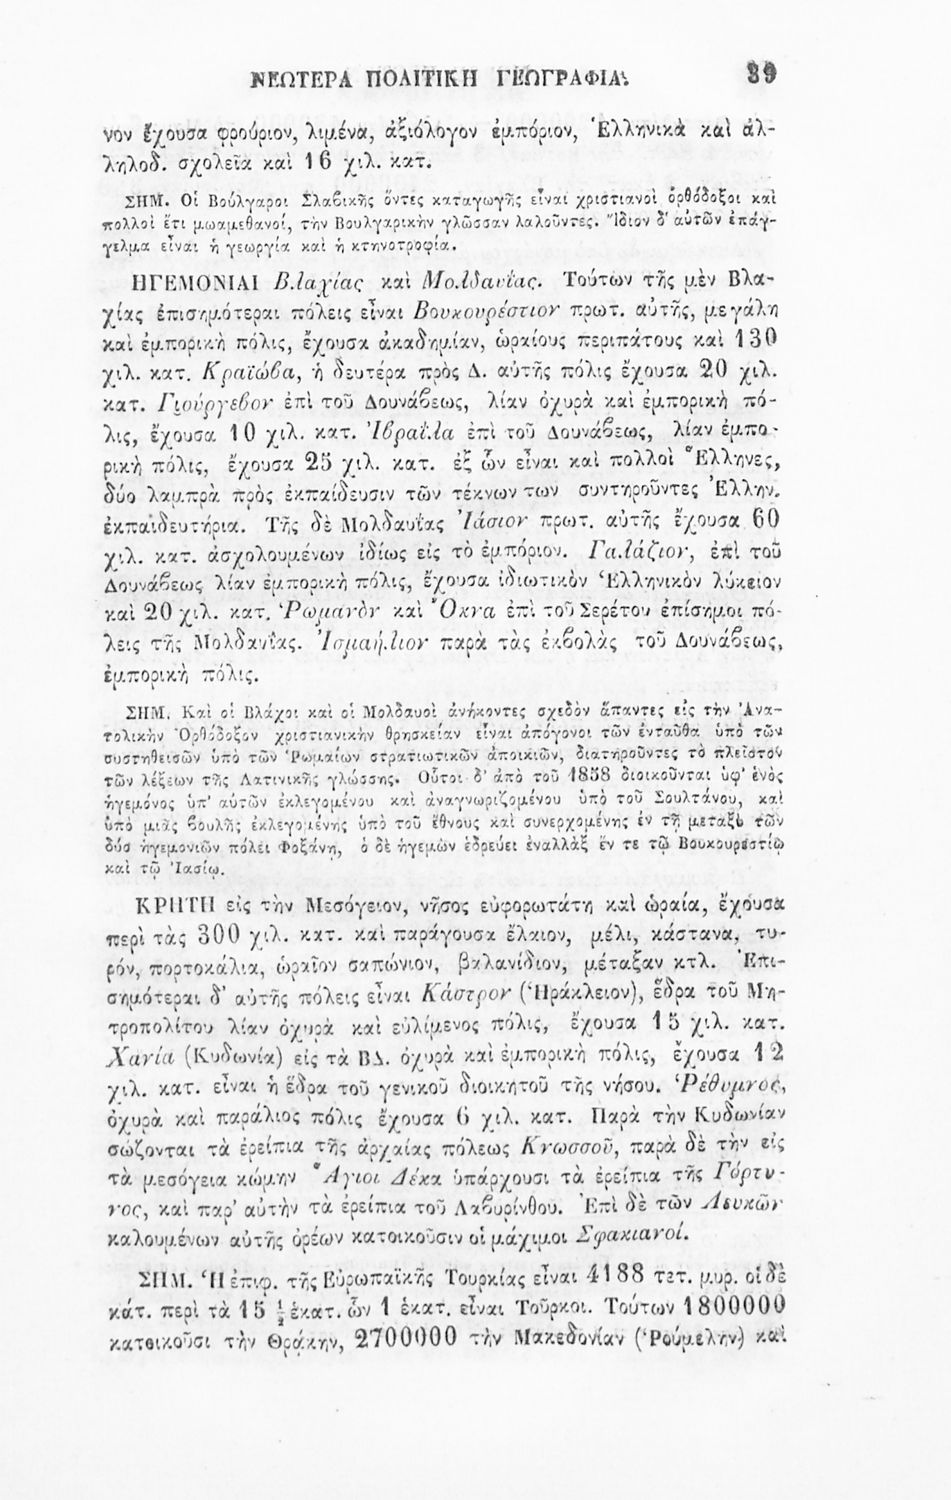 ΝΕΩΤΕΡΑ ΠΟΛΙΤΙΚΗ ΓΕΩΓΡΑΦΙΑ. 39
νον ἔχουσα φρούριον, λιμένα, ἀξιόλογον ἐμπόριον, Ἑλληνικὰ καὶ ἀλ-
ληλοδ. σχολεῖα καὶ 16 χιλ. κατ.
ΣΗΜ. Οἱ Βούλγαροι Σλαβικῆς ὄντες καταγωγῆς εἶναι χριστιανοὶ ὀρθόδοξοι καὶ
πολλοὶ ἔτι μωαμεθανοί, τὴν Βουλγαρικὴν γλῶσσαν λαλοῦντες. Ἴδιον δ' αὐτῶν ἐπάγ-
γελμα εἶναι ἡ γεωργία καὶ ἡ κτηνοτροφία.
ΗΓΕΜΟΝΙΑΙ Βλαχίας καὶ Μολδαυΐας. Τούτων τῆς μὲν Βλα-
χίας ἐπισημότεραι πόλεις εἶναι Βουκουρέστιον πρωτ. αὐτῆς, μεγάλη
καὶ ἐμπορικὴ πόλις, ἔχουσα ἀκαδημίαν, ὡραίους περιπάτους καὶ 130
χιλ. κατ. Κραϊώβα, ἡ δευτέρα πρὸς Δ. αὐτῆς πόλις ἔχουσα 20 χιλ.
κατ. Γιούργεβον ἐπὶ τοῦ Δουνάβεως, λίαν ὀχυρὰ καὶ ἐμπορικὴ πό-
λις, ἔχουσα 10 χιλ. κατ. Ἰβραΐλα ἐπὶ τοῦ Δουνάβεως, λίαν ἐμπο-
ρικὴ πόλις, ἔχουσα 25 χιλ. κατ. ἐξ ὧν εἶναι καὶ πολλοὶ Ἕλληνες,
δύο λαμπρὰ πρὸς ἐκπαίδευσιν τῶν τέκνων των συντηροῦντες Ἑλλην.
ἐκπαιδευτήρια. Τῆς δὲ Μολδαυΐας Ἰάσιον πρωτ. αὐτῆς ἔχουσα 60
χιλ. κατ. ἀσχολουμένων ἰδίως εἰς τὸ ἐμπόριον. Γαλάζιον, ἐπὶ τοῦ
Δουνάβεως λίαν ἐμπορικὴ πόλις, ἔχουσα ἰδιωτικὸν Ἑλληνικὸν λύκειον
καὶ 20 χιλ. κατ. Ῥωμανὸν καὶ Ὄκνα ἐπὶ τοῦ Σερέτου ἐπίσημοι πό-
λεις τῆς Μολδαυΐας. Ἰσμαήλιον παρὰ τὰς ἐκβολὰς τοῦ Δουνάβεως,
ἐμπορικὴ πόλις.
ΣΗΜ. Καὶ οἱ Βλάχοι καὶ οἱ Μολδαυοὶ ἀνήκοντες σχεδὸν ἅπαντες εἰς τὴν Ἀνα-
τολικὴν Ὀρθόδοξον χριστιανικὴν θρησκείαν εἶναι ἀπόγονοι τῶν ἐνταῦθα ὑπὸ τῶν
συστηθεισῶν ὑπὸ τῶν Ῥωμαίων στρατιωτικῶν ἀποικιῶν, διατηροῦντες τὸ πλεῖστον
τῶν λέξεων τῆς Λατινικῆς γλώσσης. Οὗτοι δ' ἀπὸ τοῦ 1858 διοικοῦνται ὑφ' ἑνὸς
ἡγεμόνος ὑπ' αὐτῶν ἐκλεγομένου καὶ ἀναγνωριζομένου ὑπὸ τοῦ Σουλτάνου, καὶ
ὑπὸ μιᾶς βουλῆς ἐκλεγομένης ὑπὸ τοῦ ἔθνους καὶ συνερχομένης ἐν τῇ μεταξὺ τῶν
δύο ἡγεμονιῶν πόλει Φοξάνῃ, ὁ δὲ ἡγεμὼν ἑδρεύει ἐναλλὰξ ἔν τε τῷ Βουκουρεστίῳ
καὶ τῷ Ἰασίῳ.
ΚΡΗΤΗ εἰς τὴν Μεσόγειον, νῆσος εὐφορωτάτη καὶ ὡραία, ἔχουσα
περὶ τὰς 300 χιλ. κατ. καὶ παράγουσα ἔλαιον, μέλι, κάστανα, τυ-
ρόν, πορτοκάλια, ὡραῖον σαπώνιον, βαλανίδιον, μέταξαν κτλ. Ἐπι-
σημότεραι δ' αὐτῆς πόλεις εἶναι Κάστρον (Ἡράκλειον), ἕδρα τοῦ Μη-
τροπολίτου λίαν ὀχυρὰ καὶ εὐλίμενος πόλις, ἔχουσα 15 χιλ. κατ.
Χανία (Κυδωνία) εἰς τὰ ΒΔ. ὀχυρὰ καὶ ἐμπορικὴ πόλις, ἔχουσα 12
χιλ. κατ. εἶναι ἡ ἕδρα τοῦ γενικοῦ διοικητοῦ τῆς νήσου. Ῥέθυμνος,
ὀχυρὰ καὶ παράλιος πόλις ἔχουσα 6 χιλ. κατ. Παρὰ τὴν Κυδωνίαν
σώζονται τὰ ἐρείπια τῆς ἀρχαίας πόλεως Κνωσσοῦ, παρὰ δὲ τὴν εἰς
τὰ μεσόγεια κώμην Ἅγιοι Δέκα ὑπάρχουσι τὰ ἐρείπια τῆς Γόρτυ-
νος, καὶ παρ' αὐτὴν τὰ ἐρείπια τοῦ Λαβυρίνθου. Ἐπὶ δὲ τῶν Λευκῶν
καλουμένων αὐτῆς ὀρέων κατοικοῦσιν οἱ μάχιμοι Σφακιανοί.
ΣΗΜ. Ἡ ἐπιφ. τῆς Εὐρωπαϊκῆς Τουρκίας εἶναι 4188 τετ. μυρ. οἱ δὲ
κάτ. περὶ τὰ 15 ½ ἑκατ. ὧν 1 ἑκατ. εἶναι Τοῦρκοι. Τούτων 1800000
κατοικοῦσι τὴν Θράκην, 2700000 τὴν Μακεδονίαν (Ῥούμελην) καὶ